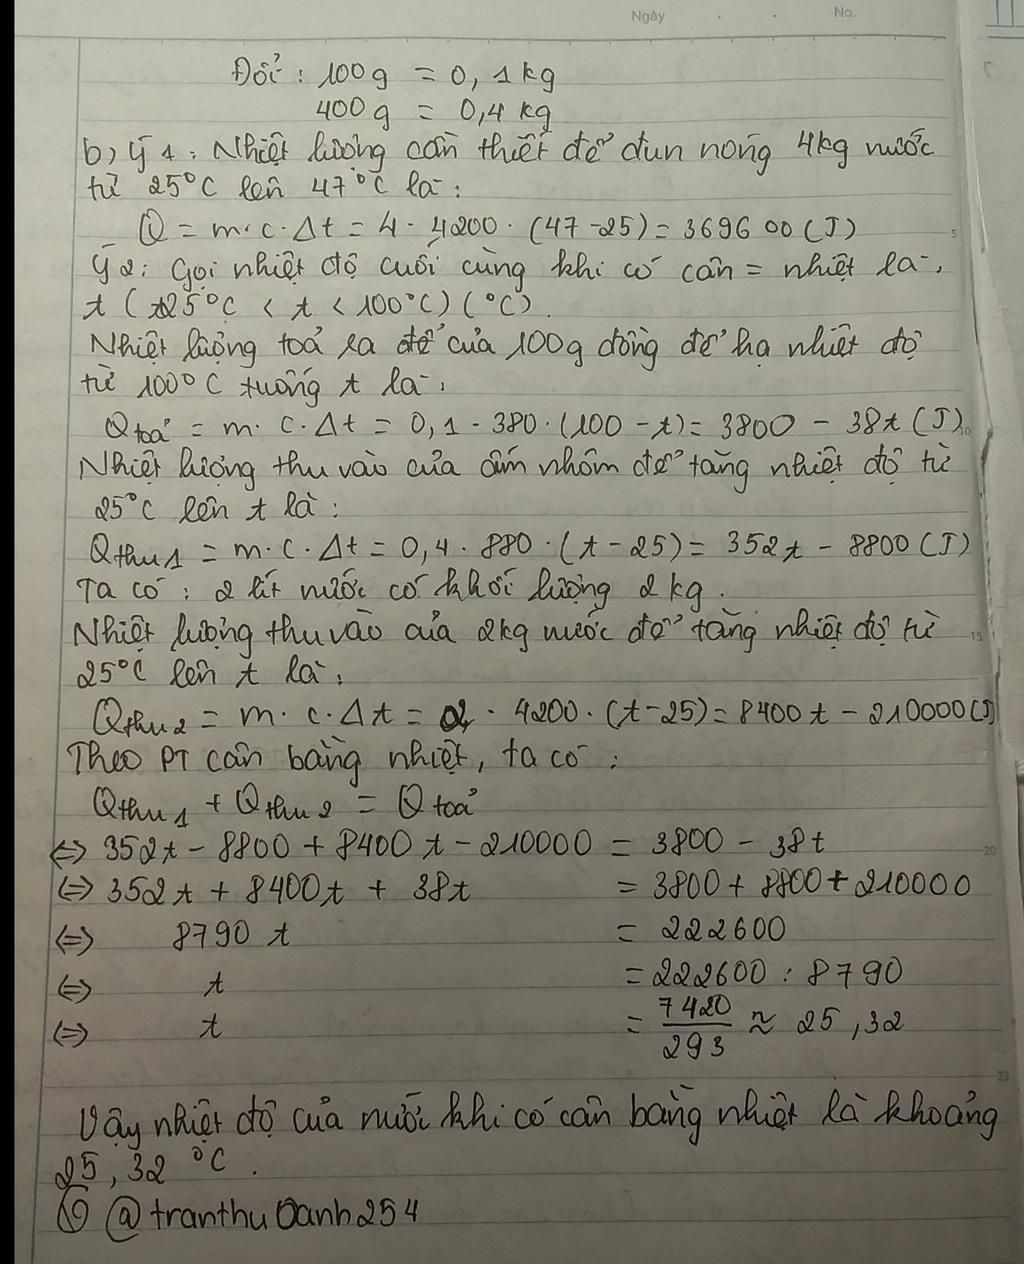 Ngày No.
Đổi : 100g = 0,1kg
400g = 0,4 kg
b) Ý 1 : Nhiệt lượng cần thiết để đun nóng 4kg nước
từ 25°C lên 47°C là :
Q = m.c.Δt = 4. 4200.(47-25) = 369600 (J)
Ý 2: Gọi nhiệt độ cuối cùng khi có cân = nhiệt là
t (25°C < t < 100°C) (°C).
Nhiệt lượng toả ra để của 100g đồng để hạ nhiệt độ
từ 100°C xuống t là :
Qtoả = m. c.Δt = 0,1. 380.(100 - t) = 3800 - 38t (J)
Nhiệt lượng thu vào của ấm nhôm để tăng nhiệt độ từ
25°C lên t là :
Qthu1 = m.c.Δt = 0,4. 880.(t - 25) = 352t - 8800 (J)
Ta có : 2 lít nước có khối lượng 2kg.
Nhiệt lượng thu vào của 2kg nước để tăng nhiệt độ từ
25°C lên t là :
Qthu2 = m. c.Δt = 2. 4200.(t-25) = 8400t - 210000 (J)
Theo PT cân bằng nhiệt, ta có :
Qthu1 + Qthu2 = Qtoả
<=> 352t - 8800 + 8400t - 210000 = 3800 - 38t
<=> 352t + 8400t + 38t = 3800 + 8800 + 210000
<=> 8790 t = 222600
<=> t = 222600 : 8790
<=> t = 7420/293 ≈ 25,32
Vậy nhiệt độ của nước khi có cân bằng nhiệt là khoảng
25,32 °C.
@tranthuoanh254